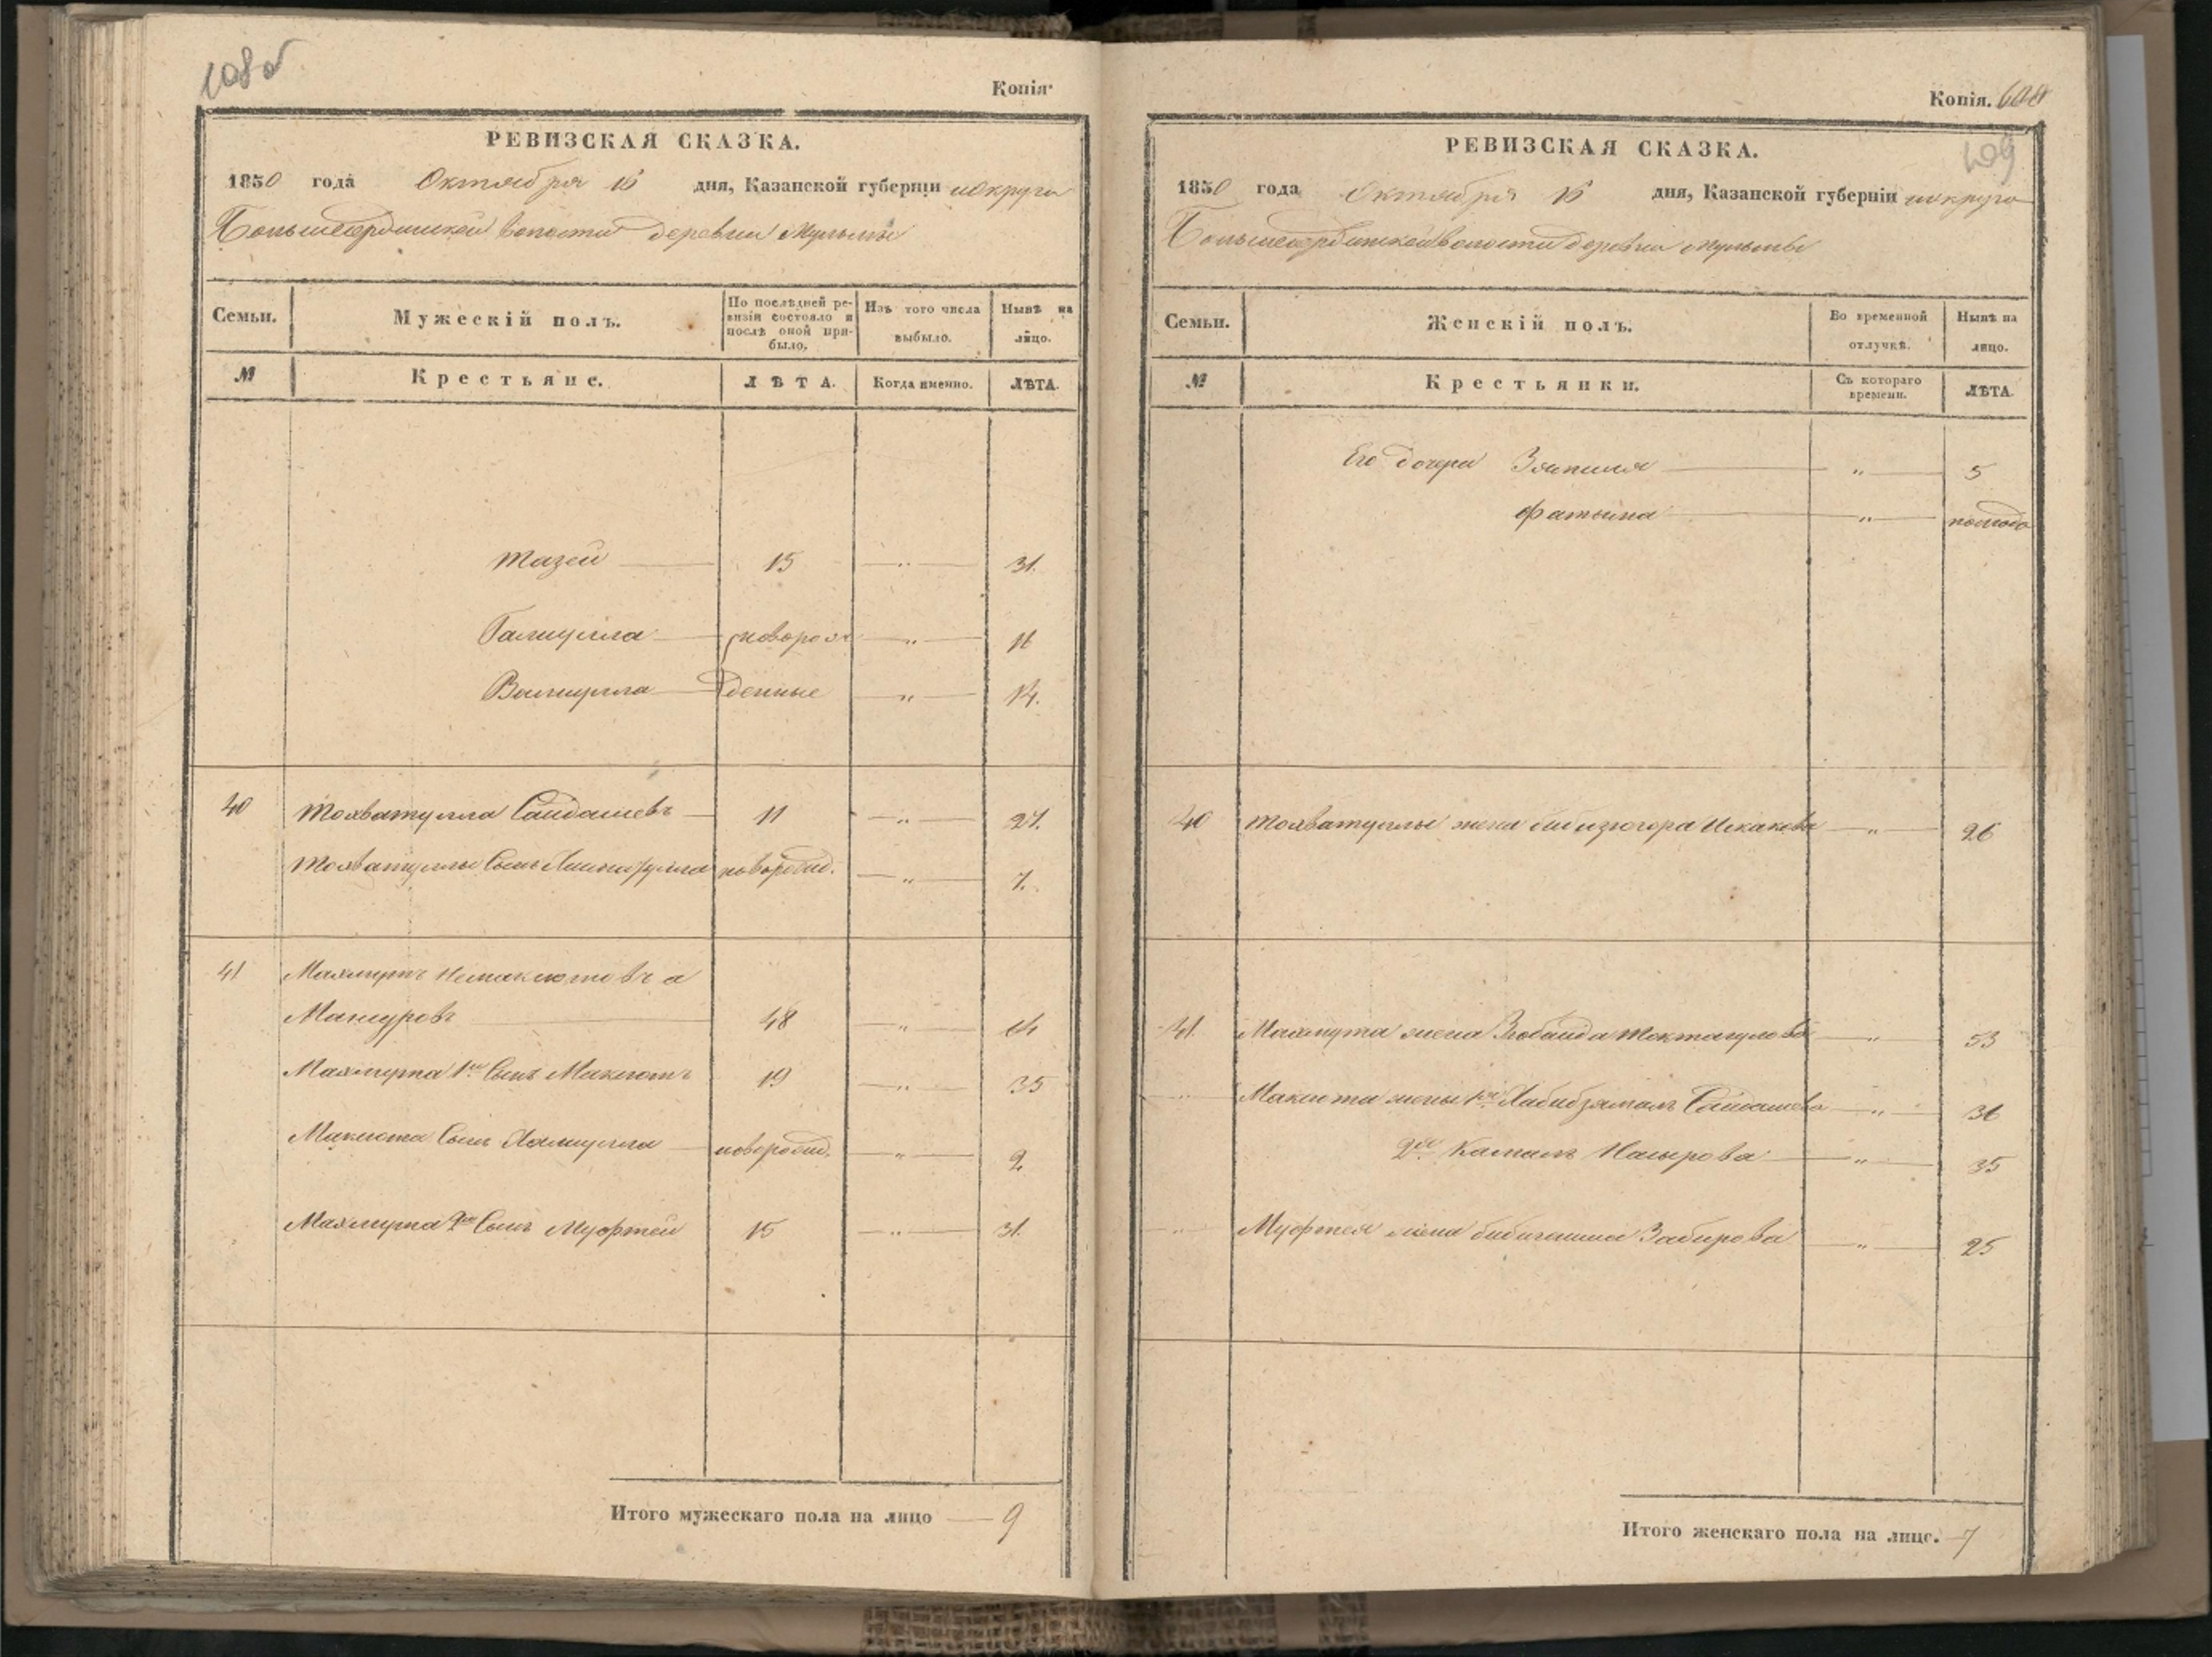 108 об
Копія.
РЕВИЗСКАЯ СКАЗКА.
1850 года Октября 16 дня, Казанской губерніи и округа
волости деревни Мульмы
Семьи. Мужескій полъ. По послѣдней ревизіи состояло и послѣ оной прибыло. Изъ того числа выбыло. Нынѣ на лицо.
№ Крестьяне. ЛѢТА. Когда именно. ЛѢТА.
Тазей 15 — „ — 31.
Галиулла новорож — „ — 16
Валиулла денные „ — 14.
40 Тохватулла Сайдашевъ 11 — „ — 27.
Тохватуллы Сынъ новорожд. — „ — 7.
41 Махмутъ а
Мансуровъ 48 — „ — 64
Махмута 1й Сынъ Максютъ 19 — „ — 35
Максюта Сынъ новорожд. — „ — 2.
Махмута 2й Сынъ Муфтей 15 — „ — 31.
Итого мужескаго пола на лицо — 9
Копія.
109
РЕВИЗСКАЯ СКАЗКА.
1850 года Октября 16 дня, Казанской губерніи и округа
волости деревни Мульмы
Семьи. Женскій полъ. Во временной отлучкѣ. Нынѣ на лицо.
№ Крестьянки. Съ котораго времени. ЛѢТА.
Его дочери „ 5
Фатыма „ полгода
40 Тохватуллы жена Бибизюгора Искакова — „ — 26
41. Махмута жена Зюбаида Токтагулова „ 53
Максюта жены 1я Хабибзямалъ Сайдашева „ 36
2я Камалъ Насырова — „ — 35
Муфтея жена Забирова „ — 25
Итого женскаго пола на лицо. — 7